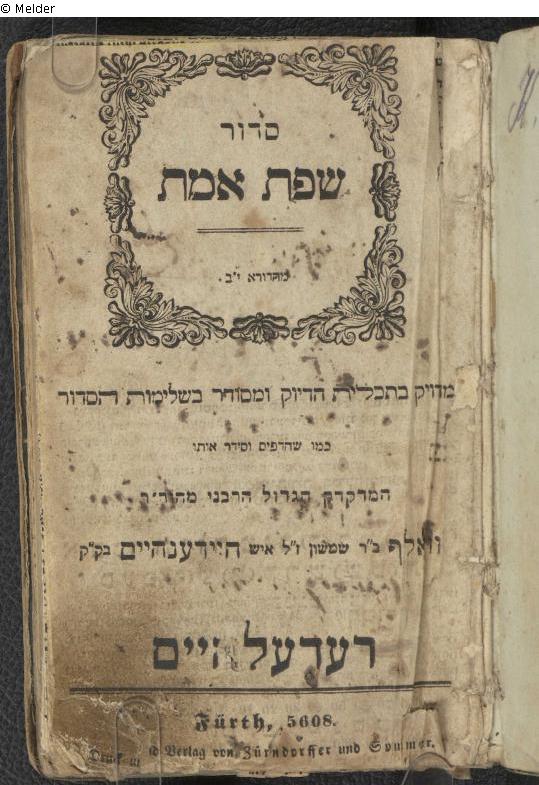 © Melder
סדור
שפת אמת
מהדורא י"ב.
מדויק בתכלית הדיוק ומסודר בשלימות הסדור
כמו שהדפיס וסידר אותו
המדקדק הגדול הרבני מהור"ר
וואלף ב"ר שמשון ז"ל איש היידענהיים בק"ק
רעדעלהיים
Fürth, 5608.
Druck und Verlag von Zürndorffer und Sommer.